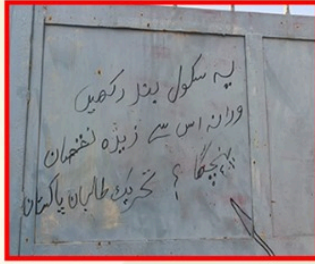 یہ سکول بند رکھیں
ورانہ اس سے زیدہ نقصان
پہنچگا ؟ تحریک طالبان پاکستان